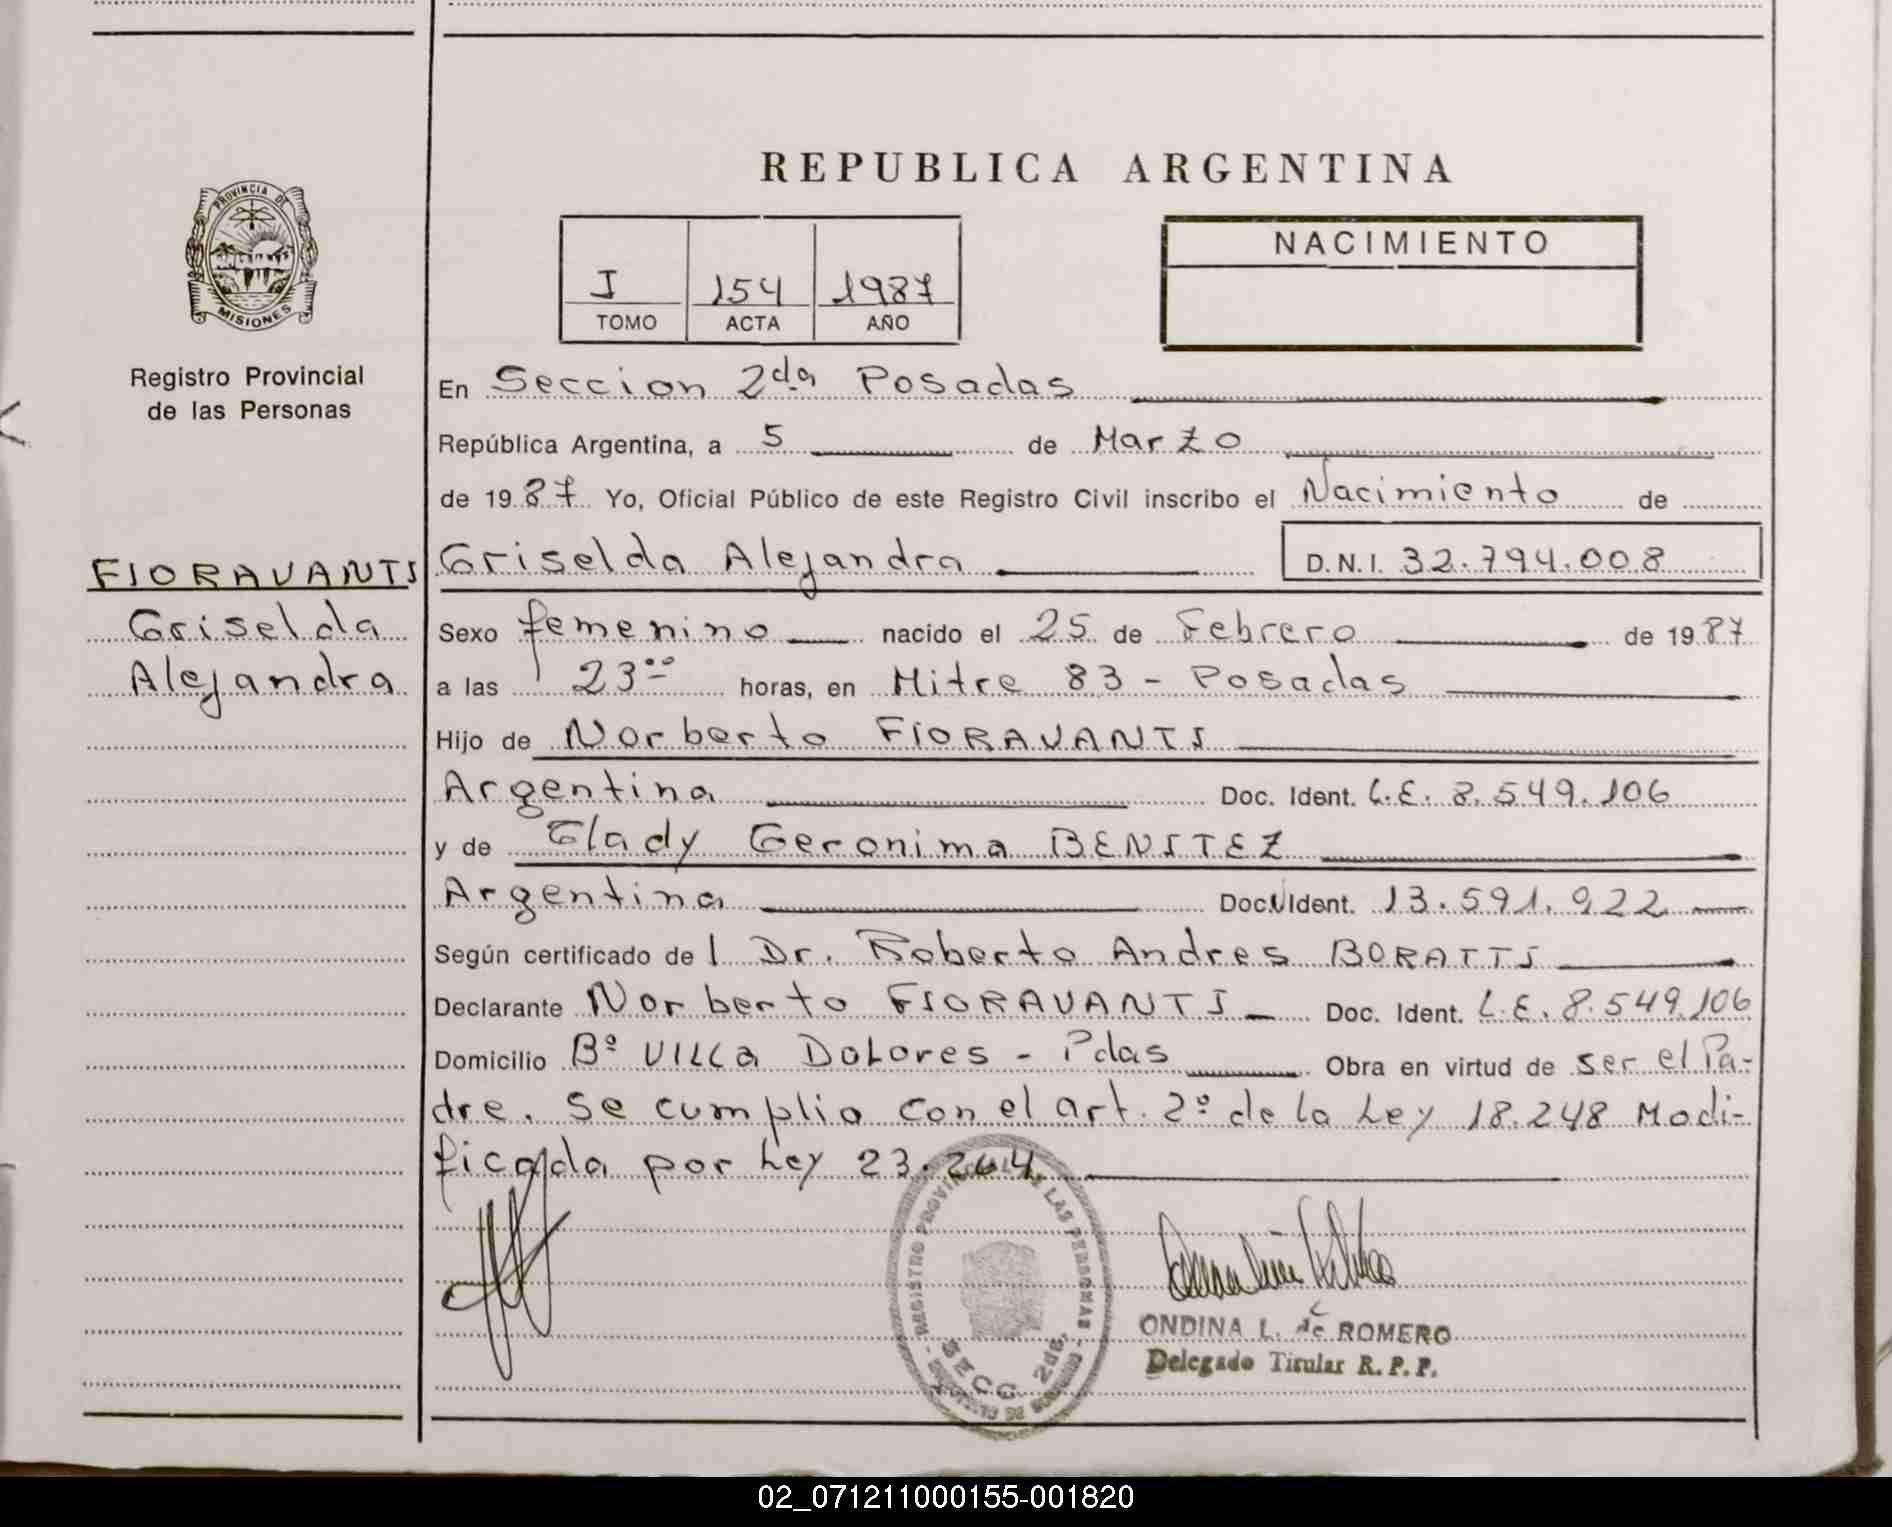 REPUBLICA ARGENTINA
PROVINCIA DE
MISIONES
Registro Provincial
de las Personas
I 154 1987
TOMO ACTA AÑO
NACIMIENTO
En Seccion 2da Posadas
República Argentina, a 5 de Marzo
de 1987 Yo, Oficial Público de este Registro Civil inscribo el Nacimiento de
FIORAVANTI
Griselda
Alejandra
Griselda Alejandra D.N.I. 32.794.008
Sexo femenino nacido el 25 de Febrero de 1987
a las 23°° horas, en Mitre 83 - Posadas
Hijo de Norberto FIORAVANTI
Argentina Doc. Ident. L.E. 8.549.106
y de Glady Geronima BENITEZ
Argentina Doc. Ident. 13.591.922
Según certificado del Dr. Roberto Andres BORATTI
Declarante Norberto FIORAVANTI Doc. Ident. L.E. 8.549.106
Domicilio Bº VILLA DOLORES - Pdas Obra en virtud de ser el Pa-
dre. Se cumplio con el art. 2º de la Ley 18.248 Modi-
ficada por Ley 23.264
REGISTRO PROVINCIAL DE LAS PERSONAS
SECC. 2da.
ONDINA L. de ROMERO
Delegado Titular R. P. P.
02_071211000155-001820